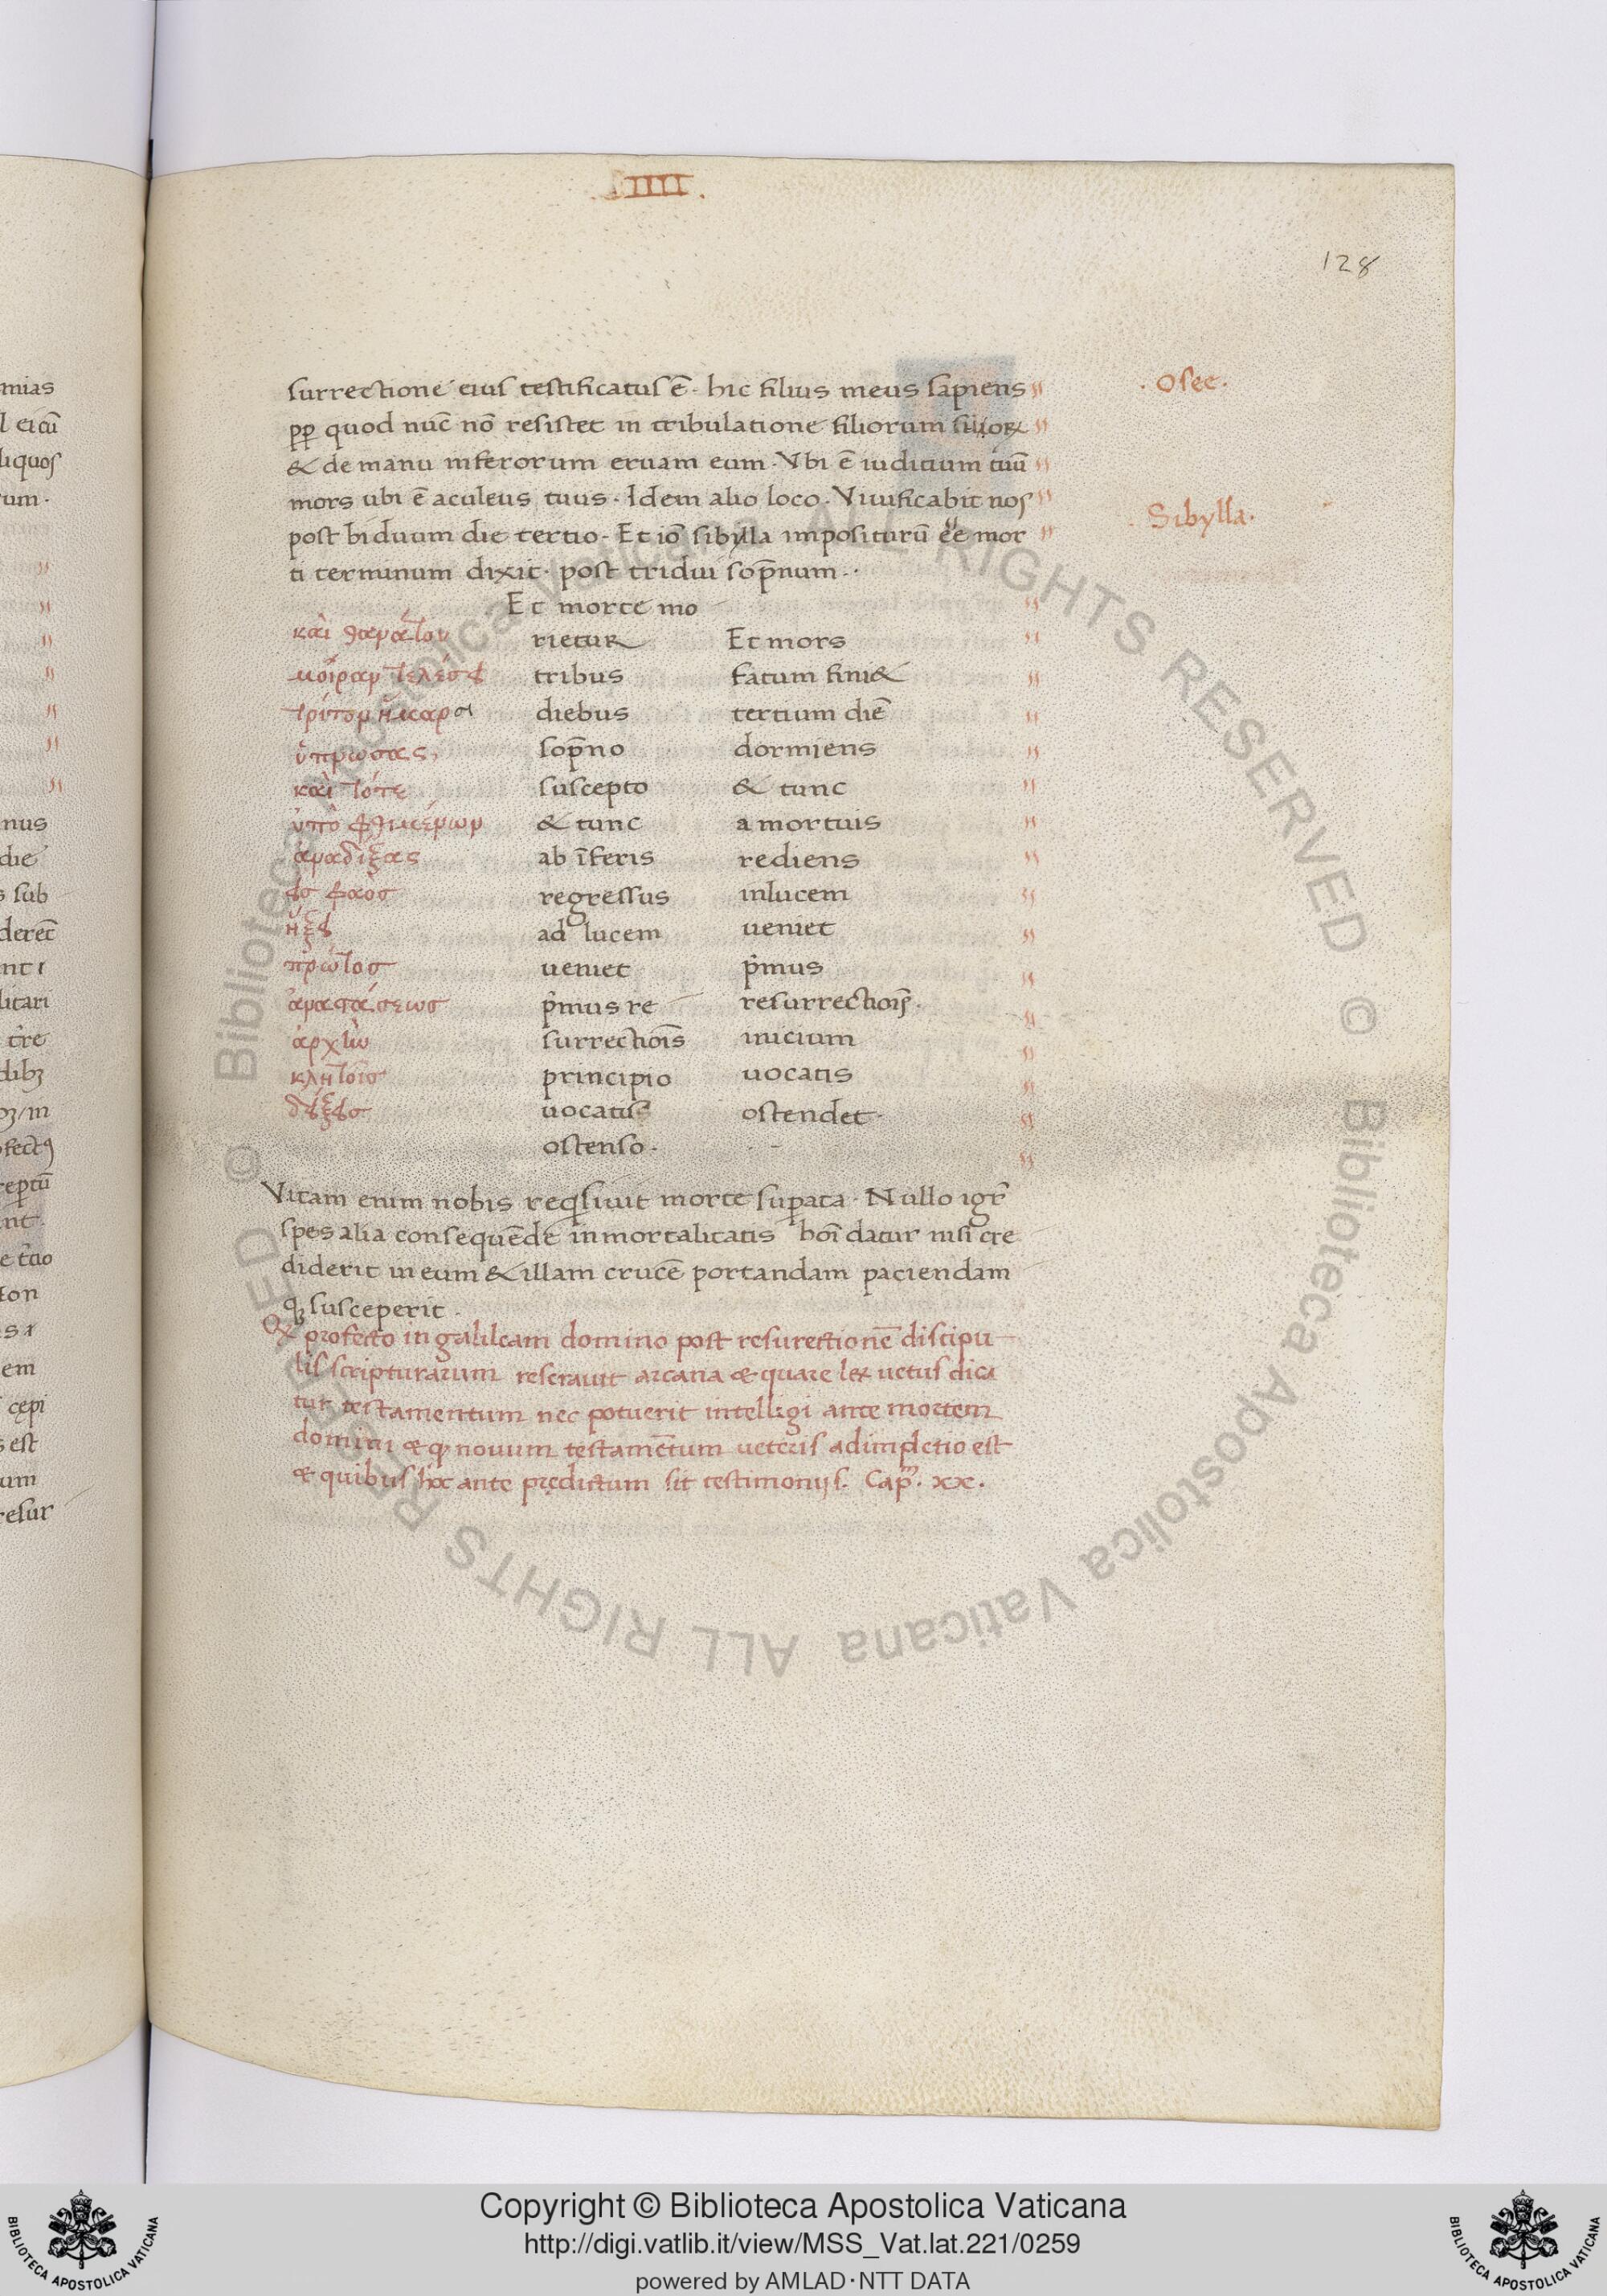 IIII.
128
surrectione eius testificatus ē. hic filius meus sapiens
.Osee.
pp quod nūc nō resistet in tribulatione filiorum suoꝝ
& de manu inferorum eruam eum. Vbi ē iuditium tuū
mors ubi ē aculeus tuus. Idem alio loco. Viuificabit nos
Sibylla.
post biduum die tertio. Et iō sibylla impositurū ēe mor
ti terminum dixit. post tridui sop̄num.
Et morte mo
καὶ θανάτου rietur Et mors
μοῖραν τελέσει tribus fatum fini&
τρίτον ἦμαρ diebus tertium diē
ὑπνώσας, sop̄no dormiens
καὶ τότε suscepto & tunc
ὑπὸ φθιμένων & tunc a mortuis
ἀναδίξας ab īferis rediens
εἰσ φαὸσ regressus inlucem
ἥξει ad lucem ueniet
πρώτοσ ueniet pͥmus
ἀναστάσεωσ pͥmus re resurrectiōis.
ἀρχὴν surrectiōis inicium
κλητοῖσ principio uocatis
δείξεισ uocatis ostendet.
ostenso.
Vitam enim nobis reqͥsiuit morte suꝑata. Nullo igr̄
spes alia consequēde inmortalitatis hoī datur nisi cre
diderit in eum & illam crucē portandam paciendam
qꝫ susceperit.
Qꝫ profecto in galileam domino post resurectionē discipu
lis scripturarum reserauit arcana & quare lex uetus dici
tur testamentum nec potuerit intelligi ante mortem
domini & qꝫ nouum testamētum ueteris adimpletio est
& quibus hoc ante prędictum sit testimonijs. Capᵐ. xx.
Copyright © Biblioteca Apostolica Vaticana
http://digi.vatlib.it/view/MSS_Vat.lat.221/0259
powered by AMLAD·NTT DATA